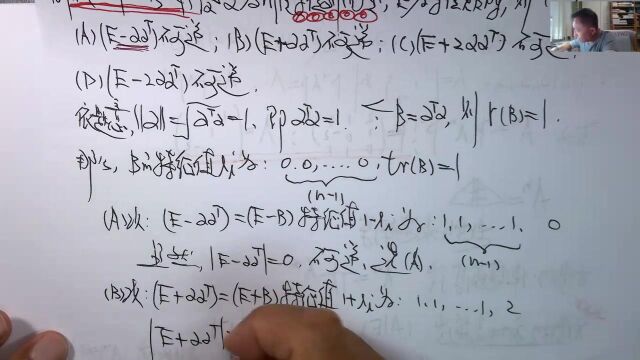 (A) (E-ααᵀ)不可逆; (B)(E+ααᵀ)不可逆; (C)(E+2ααᵀ)不可逆
(D) (E-2ααᵀ)不可逆.
依题意, ||α||=√αᵀα=1, 即αᵀα=1. ∴ B=ααᵀ, 则 r(B)=1.
B的特征值λi为: 0.0,....0, tr(B)=1
(n-1)
(A)从: (E-ααᵀ)=(E-B)特征值1-λi为: 1,1,...,1, 0
(n-1)
显然, |E-ααᵀ|=0. 不可逆, 选(A).
(B)从: (E+ααᵀ)=(E+B)特征值1+λi为: 1,1,...,1, 2
|E+ααᵀ|